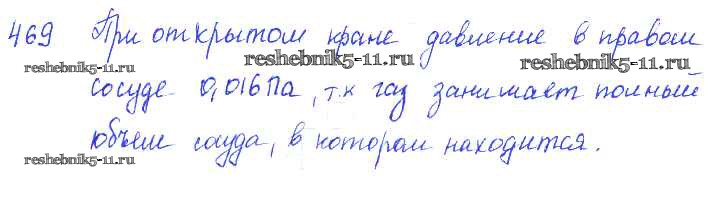 469 При открытом кране давление в правом
reshebnik5-11.ru reshebnik5-11.ru reshebnik5-11.ru
сосуде 0,016 Па, т.к газ занимает полный
объем сосуда, в котором находится.
reshebnik5-11.ru